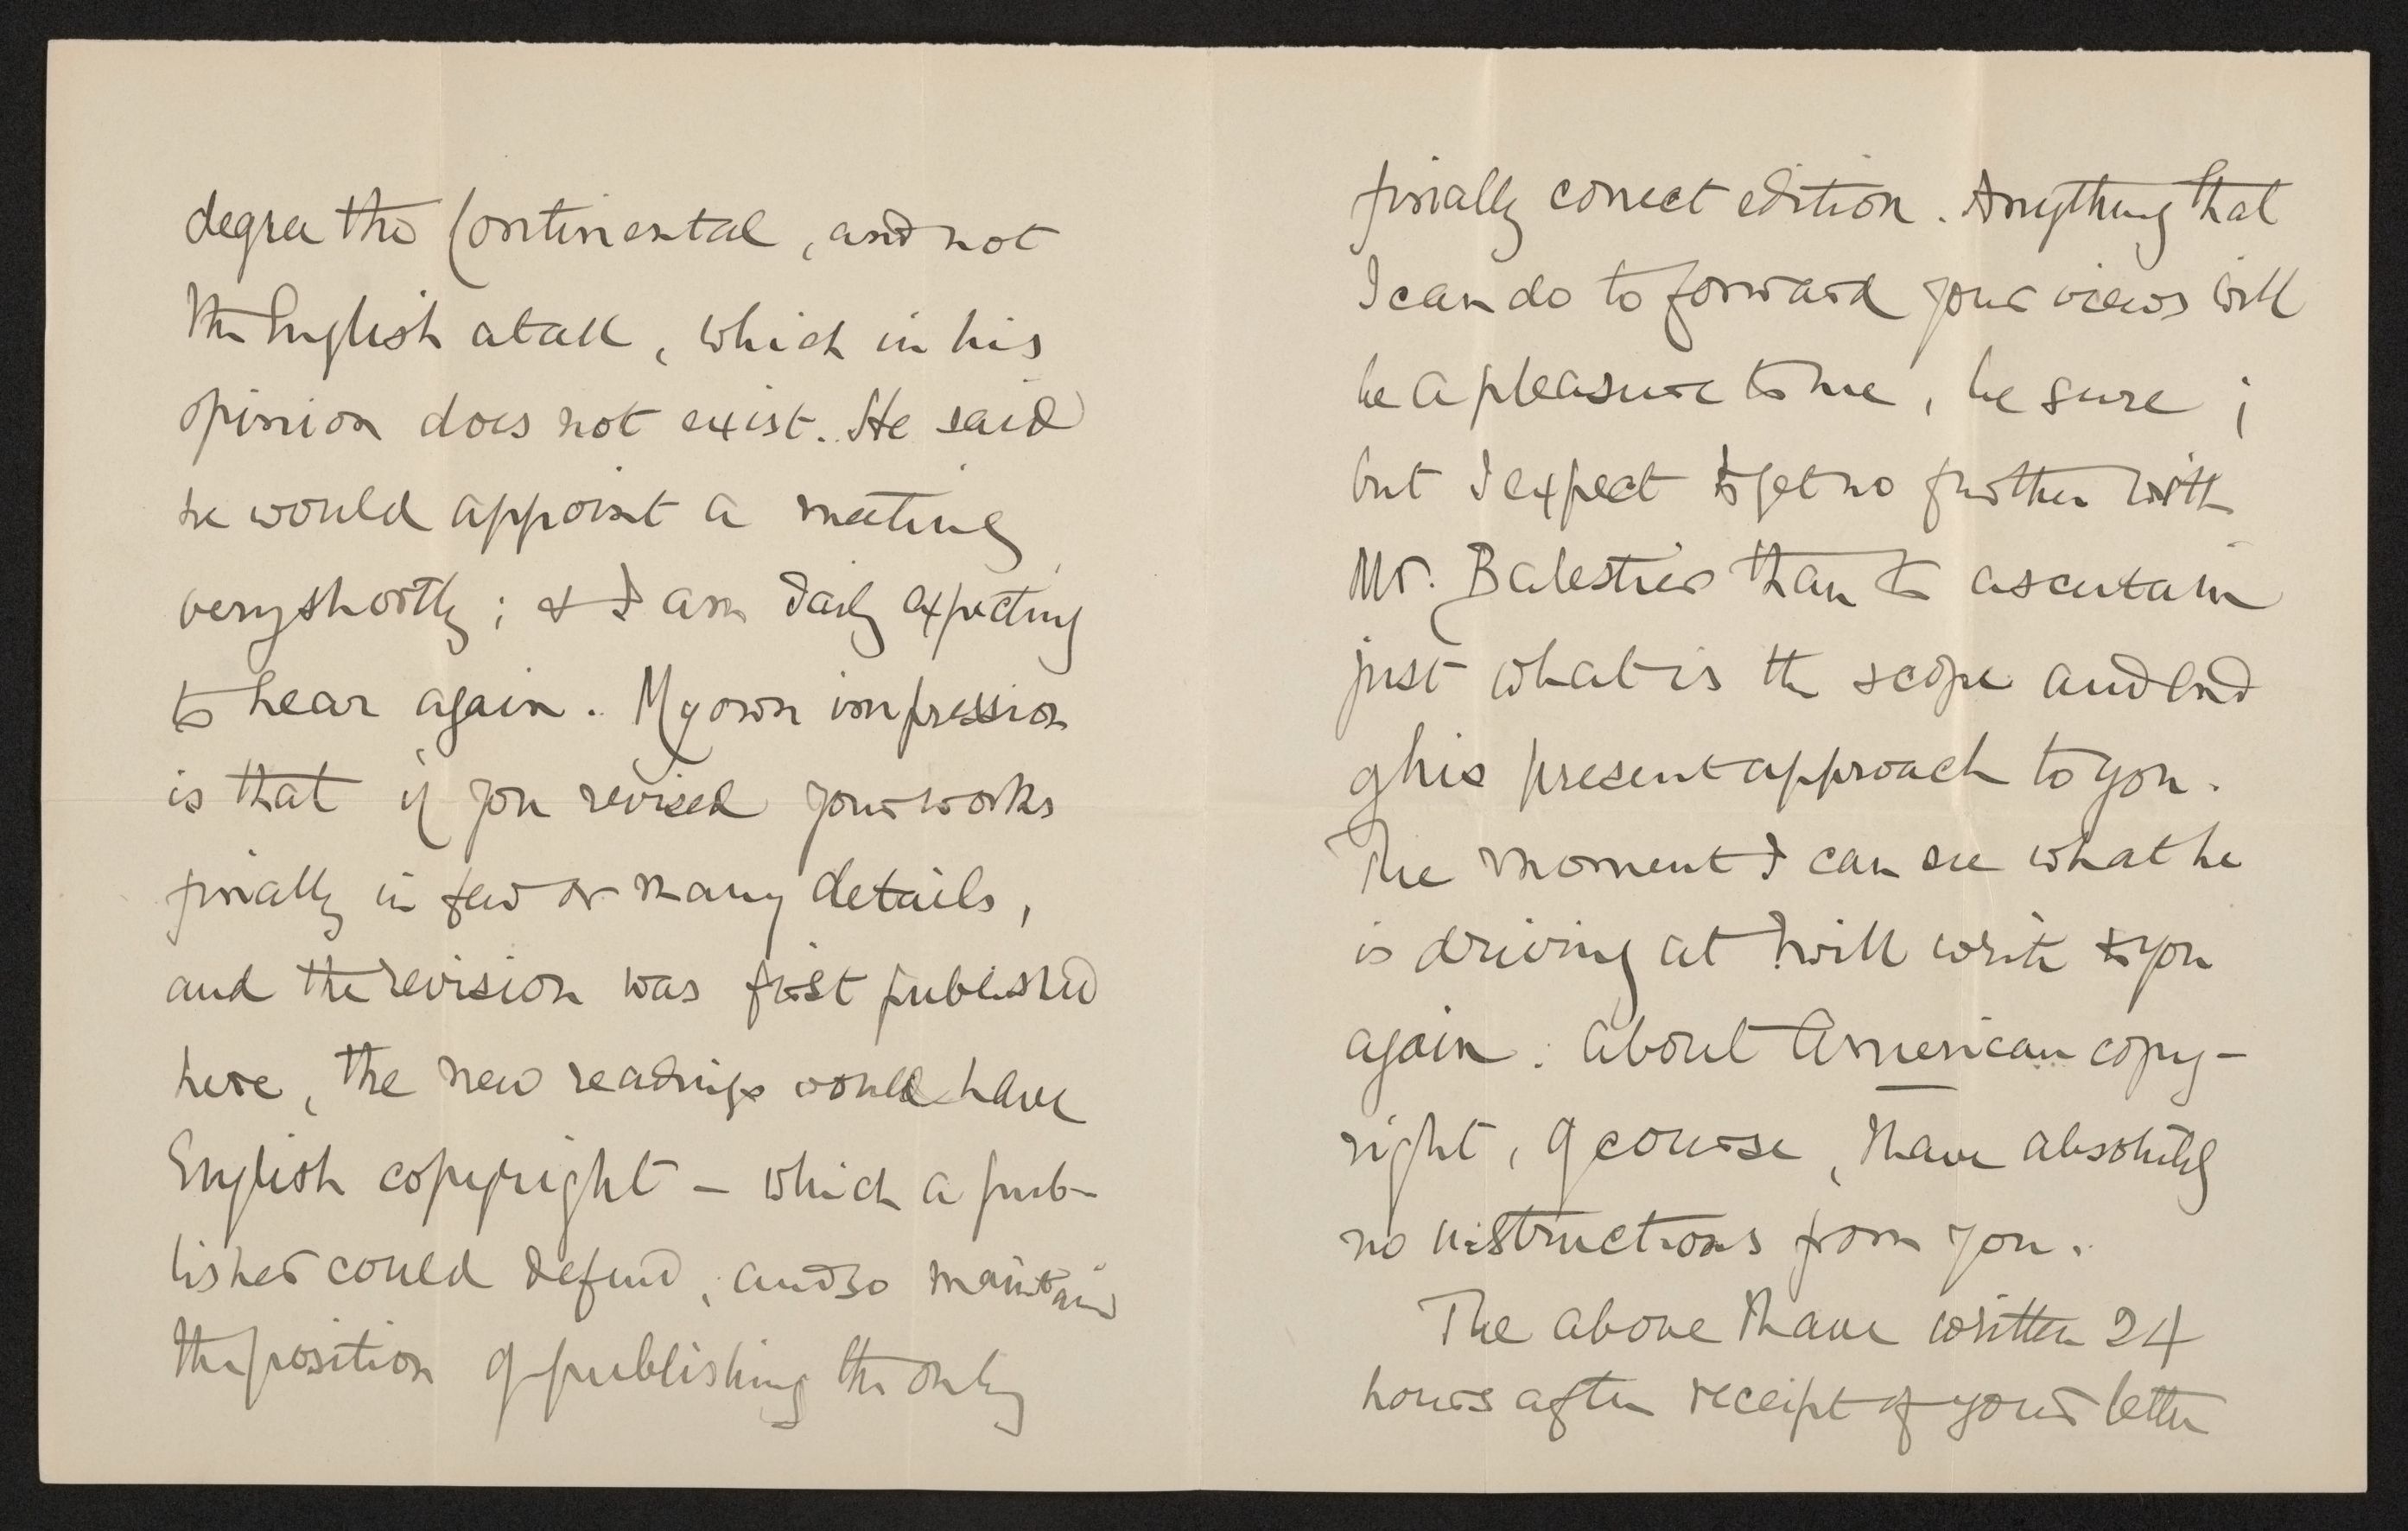 degree the Continental, and not
the English at all, which in his
opinion does not exist. He said
he would appoint a meeting
very shortly; & I am daily expecting
to hear again. My own impression
is that if you revised your works
finally in few or many details,
and the revision was first published
here, the new readings would have
English copyright – which a pub-
lisher could defend, and so maintain
the position of publishing the only
finally correct edition. Anything that
I can do to forward your views will
be a pleasure to me, be sure;
but I expect to get no further with
Mr. Balestier than to ascertain
just what is the scope and end
of his present approach to you.
The moment I can see what he
is driving at I will write to you
again. About American copy-
right, of course, I have absolutely
no instructions from you.
The above I have written 24
hours after receipt of your letter